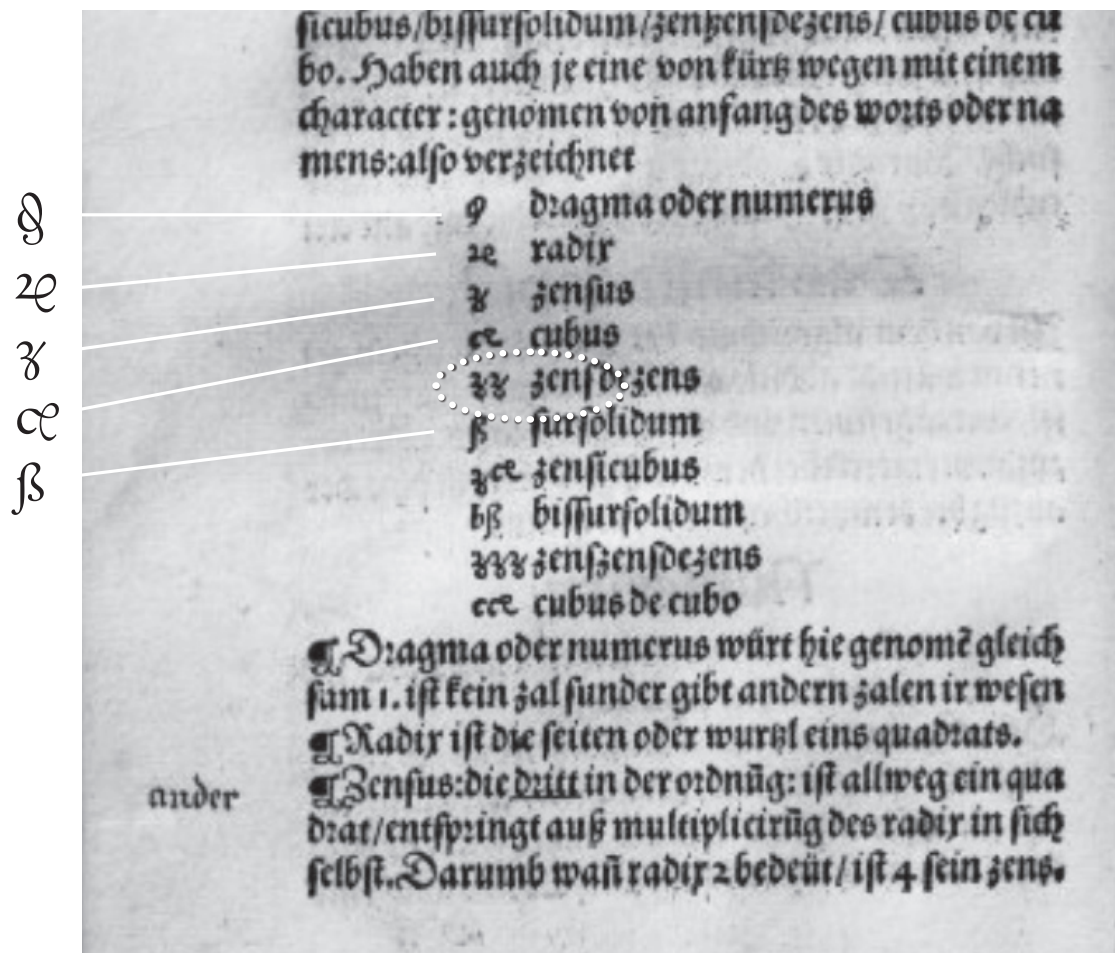 ſicubus/biſſurſolidum/zenſzenſdezens/cubus de cu
bo. Haben auch je eine von kürtz wegen mit einem
character: genomen von anfang des worts oder na
mens: alſo verzeichnet
dragma oder numerus
radix
zenſus
cubus
zenſdezens
ß ſurſolidum
zenſicubus
bß biſſurſolidum
zenſzenſdezens
cubus de cubo
¶ Dragma oder numerus würt hie genomẽ gleich
ſam 1. iſt kein zal ſunder gibt andern zalen ir weſen
¶ Radix iſt die ſeiten oder wurtzl eins quadrats.
¶ Zenſus: die dritt in der ordnũg: iſt allweg ein qua
ander
drat/entſpringt auß multiplicirũg des radix in ſich
ſelbſt. Darumb wañ radix 2 bedeüt/ iſt 4 ſein zens.